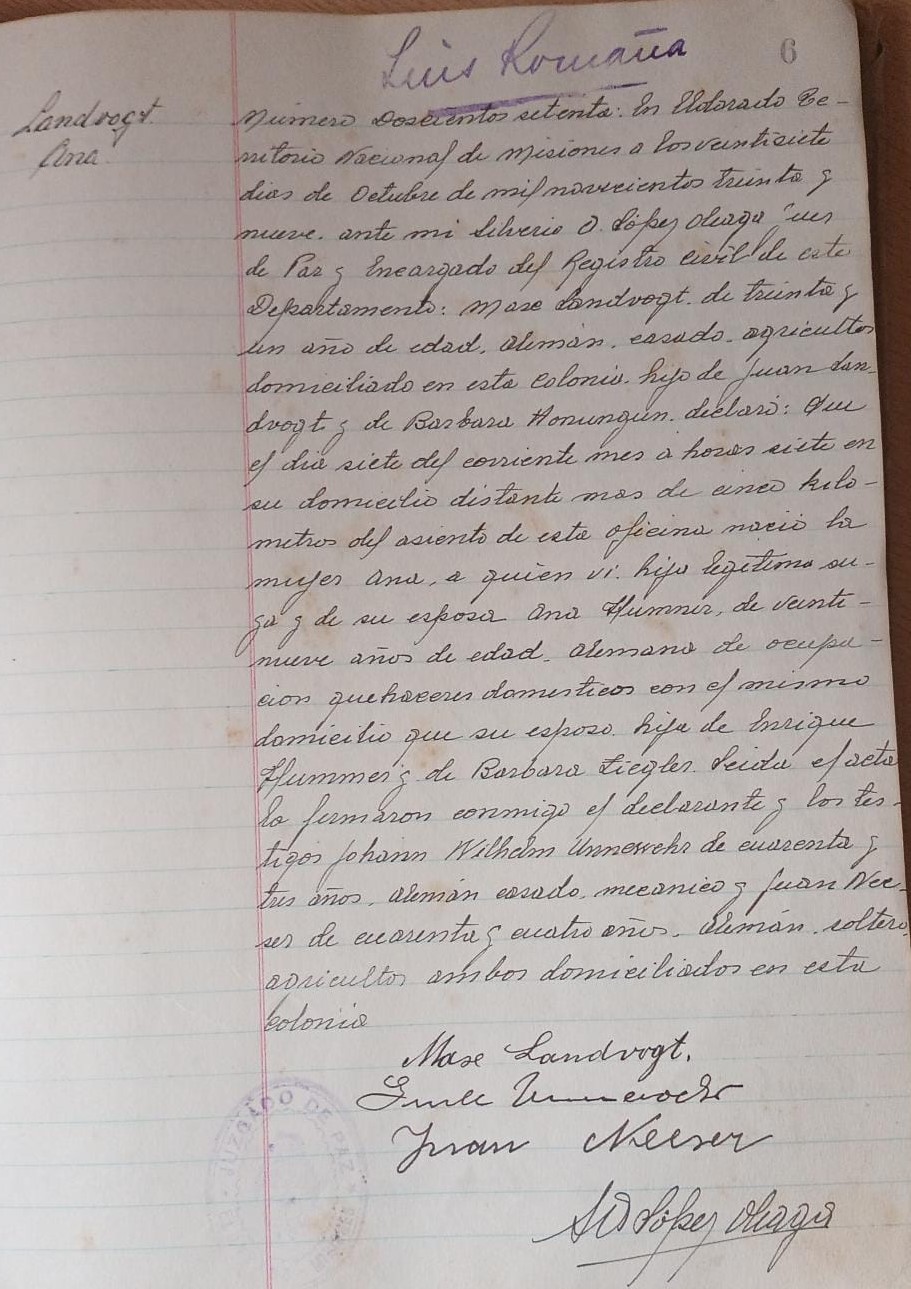 Luis Romaña
6
Landvogt
Ana
Número Doscientos setenta: En Eldorado Te-
rritorio Nacional de Misiones a los veintisiete
dias de Octubre de mil novecientos treinta y
nueve. ante mi Silverio O. López Oleaga Jues
de Paz y Encargado del Registro civil de este
Departamento: Max Landvogt. de treinta y
un año de edad. Alemán. casado. agricultor
domiciliado en esta colonia. hijo de Juan Lan-
dvogt y de Barbara Honungun. declaró: Que
el dia siete del corriente mes a horas siete en
su domicilio distante mas de cinco kilo-
metros del asiento de esta oficina nació la
mujer Ana, a quien vi. hija legitima su-
ya y de su esposa Ana Hummer, de veinti-
nueve años de edad. Alemana de ocupa-
cion quehaceres domesticos con el mismo
domicilio que su esposo. hija de Enrique
Hummer y de Barbara Ziegler. Leida el acta
la firmaron conmigo el declarante y los tes-
tigos Johann Wilhelm Unnewehr de cuarenta y
tres años. Alemán casado. mecanico y Juan Nee-
ser de cuarenta y cuatro años. Alemán. soltero.
agricultor ambos domiciliados en esta
colonia
Max Landvogt.
Juan Neeser
López Oleaga
JUZGADO DE PAZ